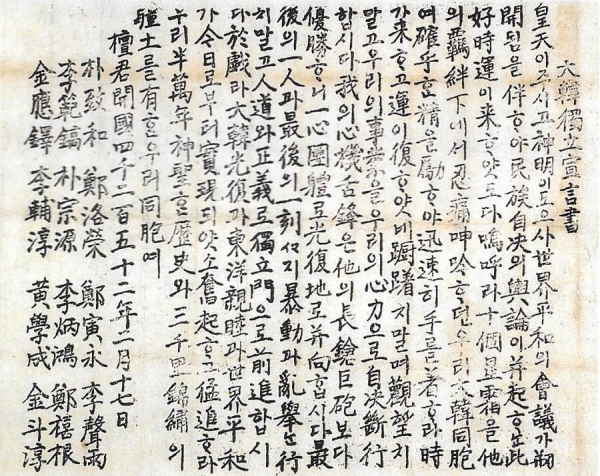 大韓獨立宣言書
皇天이주시고神明이도으사世界平和의會議가刱
開됨을伴ᄒᆞ야民族自決의輿論이并起ᄒᆞ는此
好時運이来ᄒᆞ얏도다嗚呼라十個星霜을他
의羈絆下에서忍痛呻吟ᄒᆞ던우리大韓同胞
여確乎ᄒᆞᆫ精을勵ᄒᆞ야迅速히手를着ᄒᆞ라時
가来ᄒᆞ고運이復ᄒᆞ얏매躕躇치말며觀望치
말고우리의事業을우리의心力으로自決斷行
합시다我의心機舌鋒은他의長鎗巨砲보다
優勝ᄒᆞ니一心團體로光復地로并向합시다最
後의一人과最後의一刻ᄭᆞ지暴動과亂擧는行
치말고人道와正義로獨立門으로前進합시
다於戱라大韓光復과東洋親睦과世界平和
가今日로부터實現되얏소奮起ᄒᆞ고猛進ᄒᆞ라
우리半萬年神聖ᄒᆞᆫ歷史와三千里錦繡의
疆土를有ᄒᆞᆫ우리同胞여
檀君開國四千二百五十二年一月十七日
朴致和 鄭洛榮 鄭寅永 李聲雨
李範鎬 朴宗源 李炳鴻 鄭禧根
金應鐸 李輔淳 黃學成 金斗淳